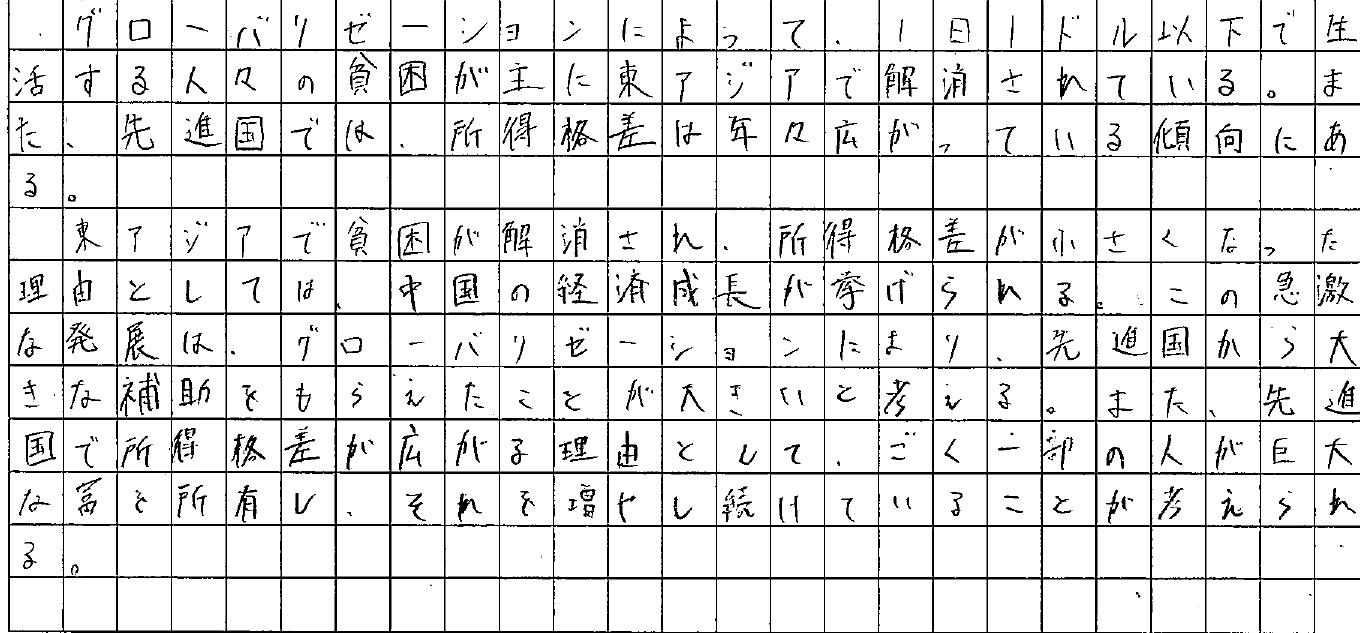 グローバリゼーションによって、1日1ドル以下で生
活する人々の貧困が主に東アジアで解消されている。ま
た、先進国では、所得格差は年々広がっている傾向にあ
る。
東アジアで貧困が解消され、所得格差が小さくなった
理由としては、中国の経済成長が挙げられる。この急激
な発展は、グローバリゼーションにより、先進国から大
きな補助をもらえたことが大きいと考える。また、先進
国で所得格差が広がる理由として、ごく一部の人が巨大
な富を所有し、それを増やし続けていることが考えられ
る。